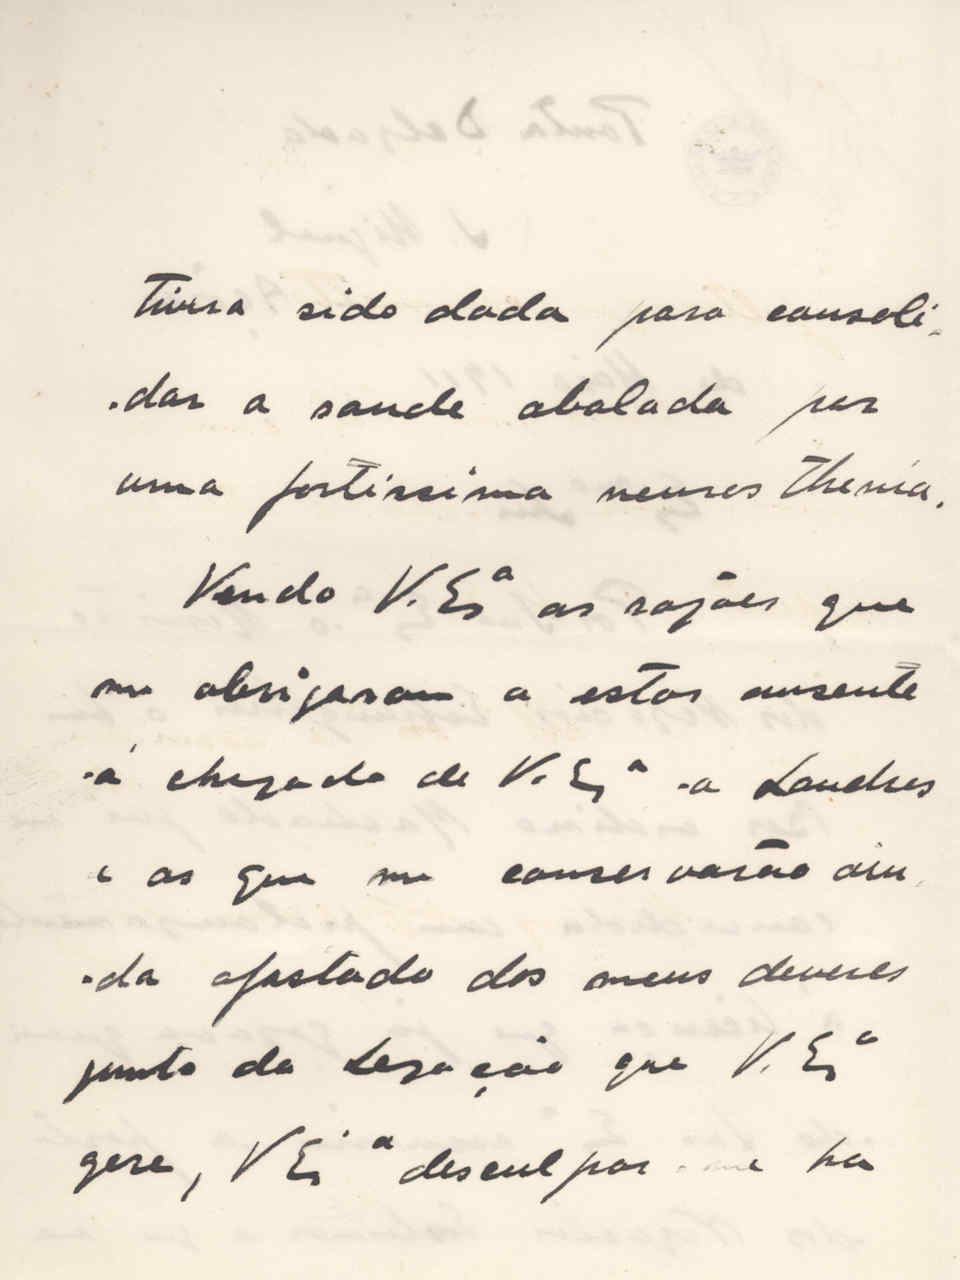 tivera sido dada para consoli-
-dar a saude abalada por
uma fortissima neurosthenia.
Vendo V. Exª as rasões que
me obrigaram a estar ausente
-á chegada de V. Exª -a Londres
e as que me conservarão ain-
-da afastado dos meus deveres
junto da Legação que V. Exª
gere, V Exª desculpar-me ha